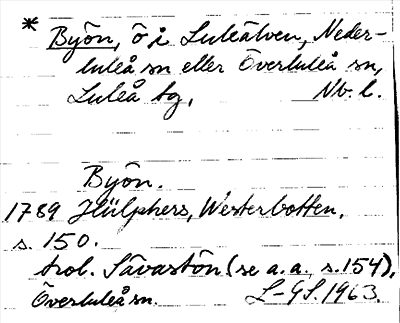 * Byön, ö i Luleälven, Neder-
luleå sn eller Överluleå sn,
Luleå tg, Nb. l.
Byön.
1789 Hülphers, Westerbotten,
s. 150.
trol. Sävastön (se a.a. s.154),
Överluleå sn. L-GS.1963.